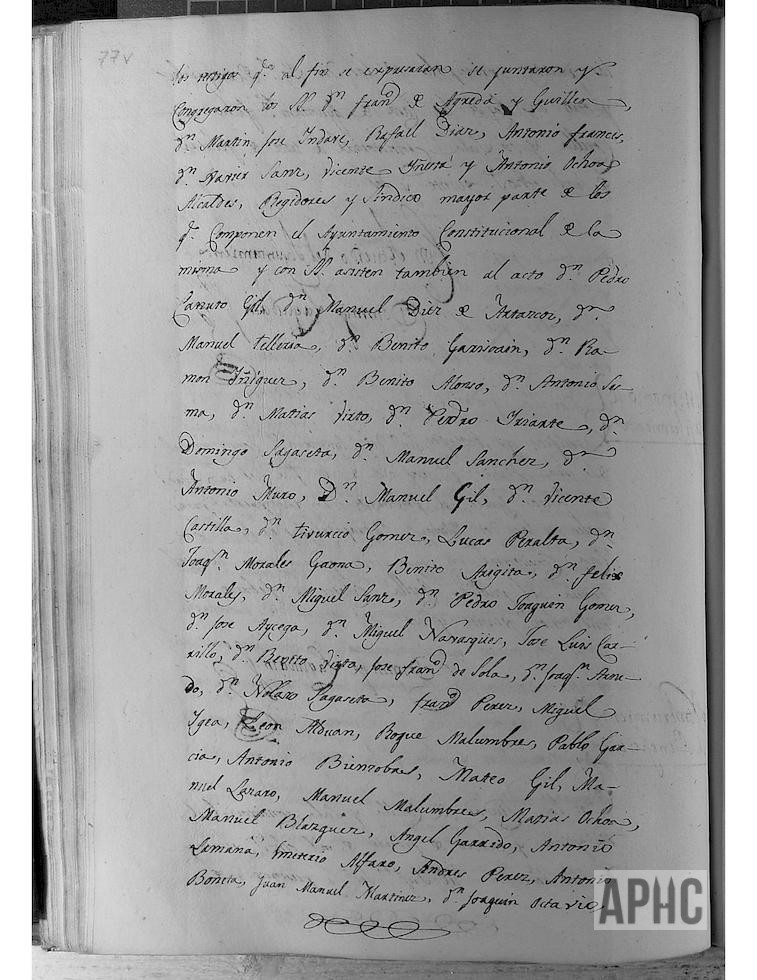 77v
los testigos q.e al fin se expresaran se juntaron y
Congregaron los SS. dn. franco. de Agreda y Guillen,
dn. Martin Jose Indave, Rafael Diaz, Antonio frances,
dn. Xavier Sanz, Vicente Yñeta y Antonio Ochoa,
Alcaldes, Regidores y Sindico mayor parte de los
q.e Componen el Ayuntamiento Constitucional de la
misma y con SS. asisten tambien al acto dn. Pedro
Canuto Gil, dn. Manuel Diez de Artazcoz, dn.
Manuel telleria, dn. Benito Garisoain, dn. Ra-
mon Yñiguez, dn. Benito Alonso, dn. Antonio Ses-
ma, dn. Matias Virto, dn. Perdro Yriarte, dn.
Domingo Sagaseta, dn. Manuel Sanchez, dn.
Antonio Muro, Dn. Manuel Gil, dn. Vicente
Castilla, dn. tivurcio Gomez, Lucas Peralta, dn.
Joaqn. Morales Gaona, Benito Arigita, dn. felix
Morales, dn. Miguel Sanz, dn. Pedro Joaquin Gomez,
dn. Jose Aycega, dn. Miguel Navasques, Jose Luis Car-
rillo, dn. Benito Virto, Jose franco. de Sola, dn. Joaqn.
do, dn. Sagaseta, franco. Perez, Miguel
Ygea, Leon Alduan, Roque Malumbres, Pablo Gar-
cia, Antonio Bienzobas, Mateo Gil, Ma-
nuel Lazaro, Manuel Malumbres, Matias Ochoa,
Manuel Blazquez, Angel Garrido, Antonio
Lamana, Emeterio Alfaro, Andres Perez, Antonio
Boneta, Juan Manuel Martinez, dn. Joaquin Octavio,
APHC